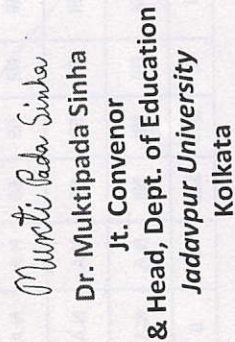 Mukti Pada Sinha
Dr. Muktipada Sinha
Jt. Convenor
& Head, Dept. of Education
Jadavpur University
Kolkata